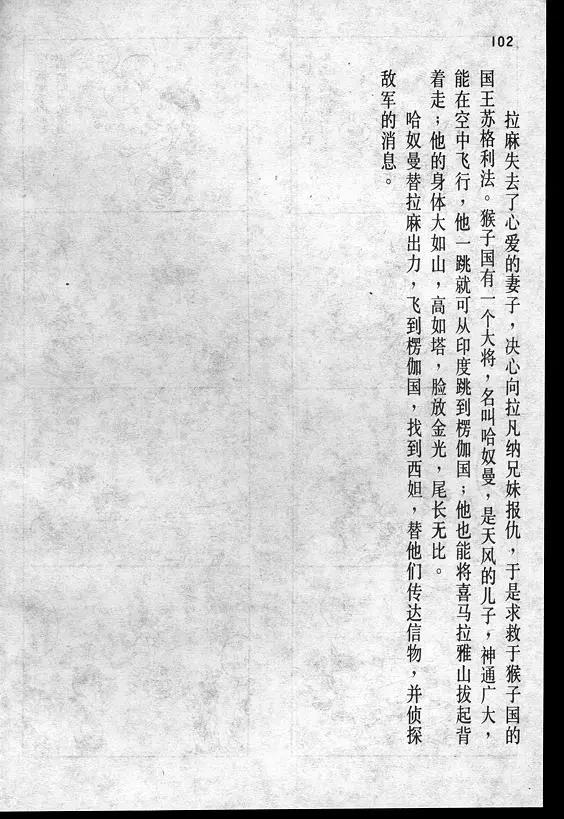 102
拉麻失去了心爱的妻子，决心向拉凡纳兄妹报仇，于是求救于猴子国的
国王苏格利法。猴子国有一个大将，名叫哈奴曼，是天风的儿子，神通广大，
能在空中飞行，他一跳就可从印度跳到楞伽国；他也能将喜马拉雅山拔起背
着走；他的身体大如山，高如塔，脸放金光，尾长无比。
哈奴曼替拉麻出力，飞到楞伽国，找到西妲，替他们传达信物，并侦探
敌军的消息。